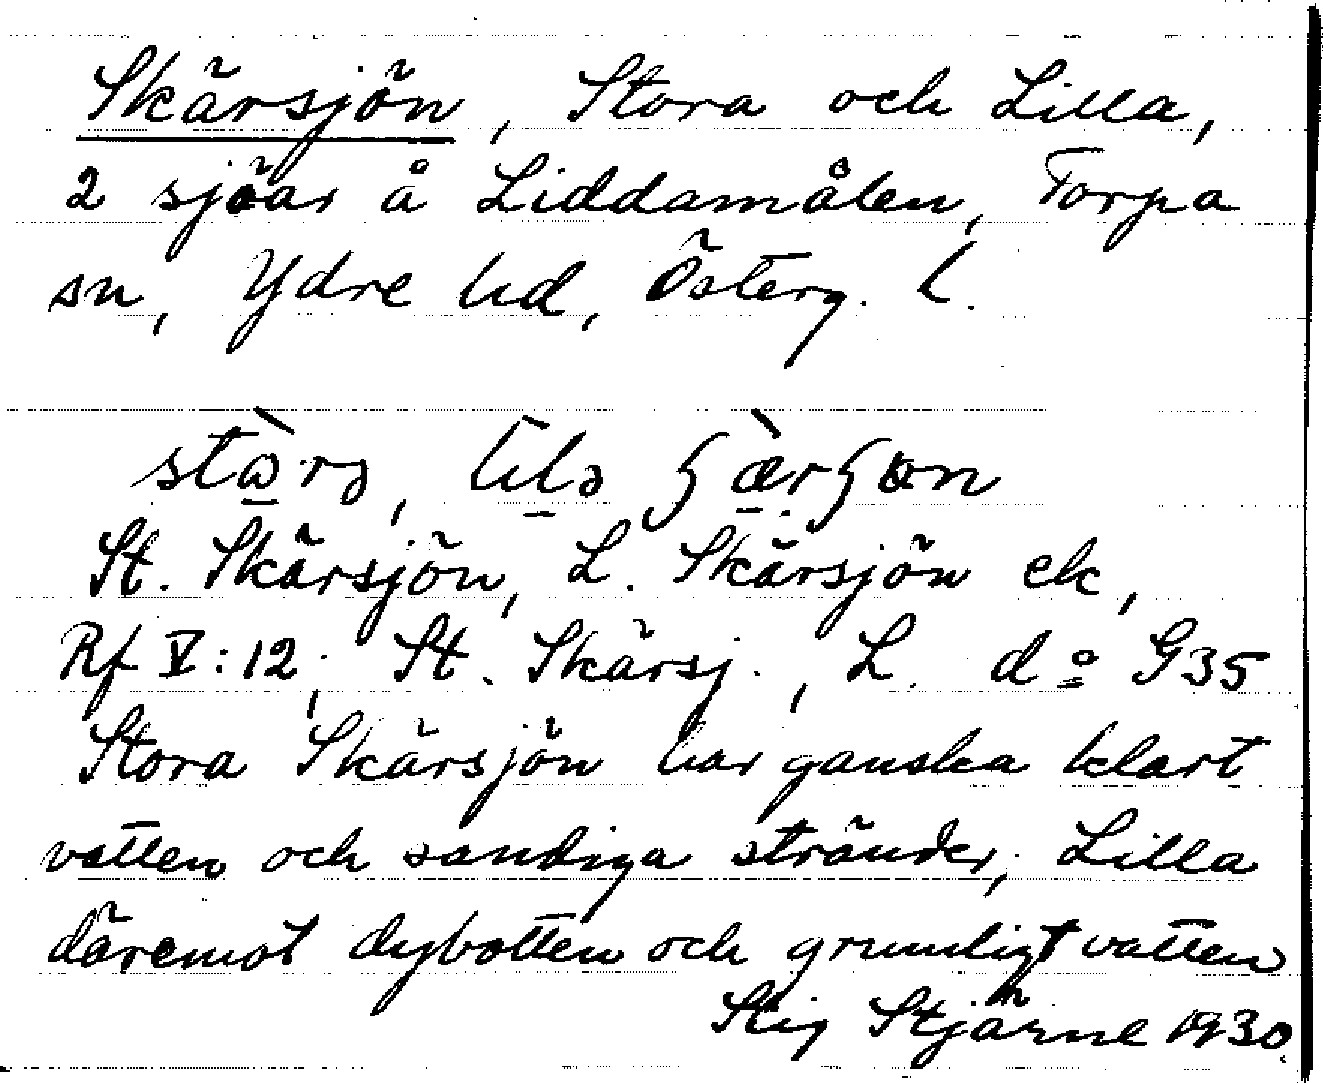 Skärsjön, Stora och Lilla,
2 sjöar å Liddamålen, Torpa
sn, Ydre hd, Österg. l.
St. Skärsjön, L. Skärsjön ek,
Rf V:12; St. Skärsj., L. do G35
Stora Skärsjön har ganska klart
vatten och sandiga stränder; Lilla
däremot dybotten och grumligt vatten
Stig Stjärne 1930.